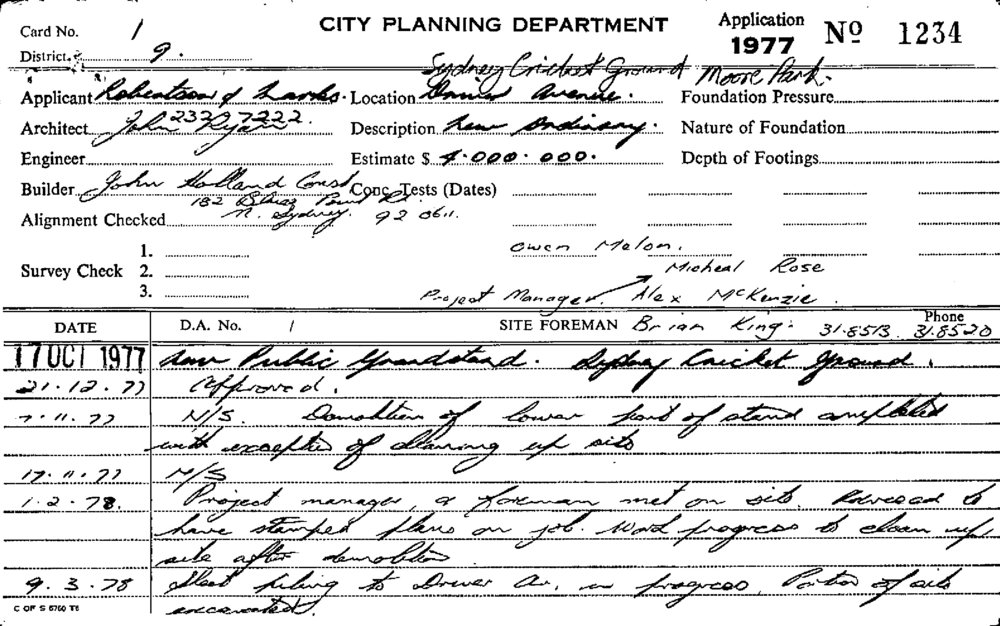 Card No. 1 CITY PLANNING DEPARTMENT Application 1977 Nº 1234
District. 9.
Sydney Cricket Ground Moore Park.
Applicant Robertson & Marks. Location Driver Avenue. Foundation Pressure
232 7222.
Architect John Ryan Description New Ordinary. Nature of Foundation
Engineer Estimate $ 4.000.000. Depth of Footings
Builder John Holland Const Conc. Tests (Dates)
182 Blues Point Rd.
Alignment Checked N. Sydney. 92 0611.
1. Owen Malon.
Survey Check 2. Micheal Rose
3. Project Manager. Alex McKenzie.
DATE D.A. No. 1 SITE FOREMAN Brian King. Phone 31.8513 31.8520
17 OCT 1977 New Public Grandstand. Sydney Cricket Ground.
21.12.77 Approved.
7.11.77 N/S. Demolition of lower part of stand completed
with exception of cleaning up site
17.11.77 N/S
1.2.78. Project manager, & foreman met on site. Advised to
have stamped plans on job. Work progress to clean up
site after demolition
9.3.78 Sheet piling to Driver Av. in progress. Portion of site
excavated.
C OF S 6760 T6